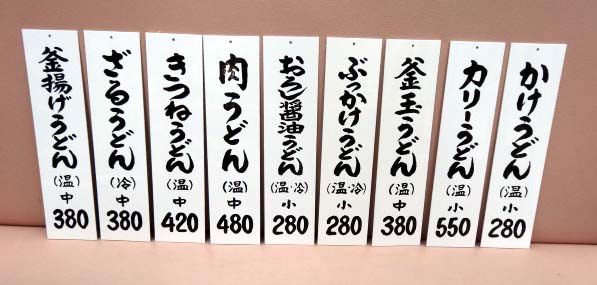 かけうどん
(温)
小
280
カリーうどん
(温)
小
550
釜玉うどん
(温)
中
380
ぶっかけうどん
(温・冷)
小
280
おろし醤油うどん
(温・冷)
小
280
肉うどん
(温)
中
480
きつねうどん
(温)
中
420
ざるうどん
(冷)
中
380
釜揚げうどん
(温)
中
380